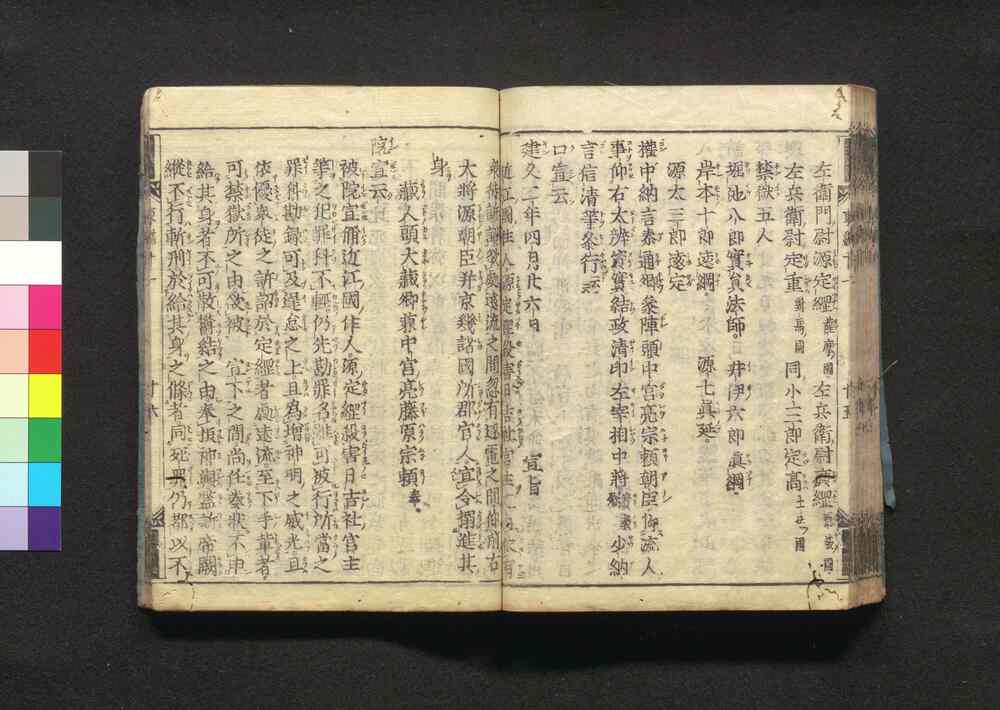 左衛門尉源定經 薩摩國 左兵衛尉 經
左兵衛尉定重 對馬國 同小三郎定髙 土佐國
禁獄五人
堀池八郎實員法師 井伊六郎眞綱
岸本十郎遠綱 源七眞延
源太三郎遠定
權中納言泰通卿參陣頭中宮亮宗頼朝臣仰流人
事仰右大辨資實結政請印左宰相中將 少納
言信清華參行云
口宣云
建久二年四月廿六日 宣旨
近江國住人源定經殺害日吉社宮主
衆徒訴訟 處遠流之間忽有逐電之間仰前右
大將源朝臣并京畿諸國所郡官人宜令搦進其
身
藏人頭大藏卿兼中宮亮藤原宗頼奉
院宣云
被院宣偁近江國住人源定經殺害日吉社宮主
等之犯罪科不輕仍先勘罪名 可被行所當之
罪科勘録可及遲怠之上且為增神明之威光且
依優衆徒之訴訟於定經者處遠流至下手輩者
可禁獄所之由 被 宣下之間尚任奏狀不申
給其身者不可散鬱結之由奉 神輿 訴帝闕
縱不行斬刑於給其身之條者同死罪 仍都以不